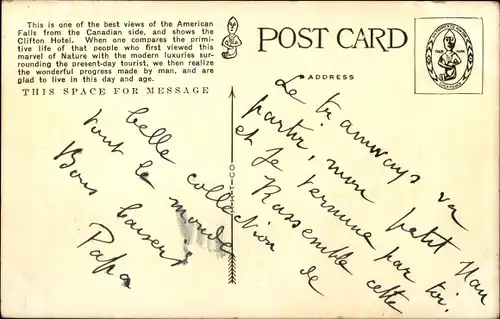 This is one of the best views of the American
Falls from the Canadian side, and shows the
Clifton Hotel. When one compares the primi-
tive life of that people who first viewed this
marvel of Nature with the modern luxuries sur-
rounding the present-day tourist, we then realize
the wonderful progress made by man, and are
glad to live in this day and age.
THIS SPACE FOR MESSAGE
POST CARD
ADDRESS
Le tramways va
partir, mon petit Nan
et je termine par toi.
Rassemble cette
collection de
belle
tout le monde
Bons baisers
Papa